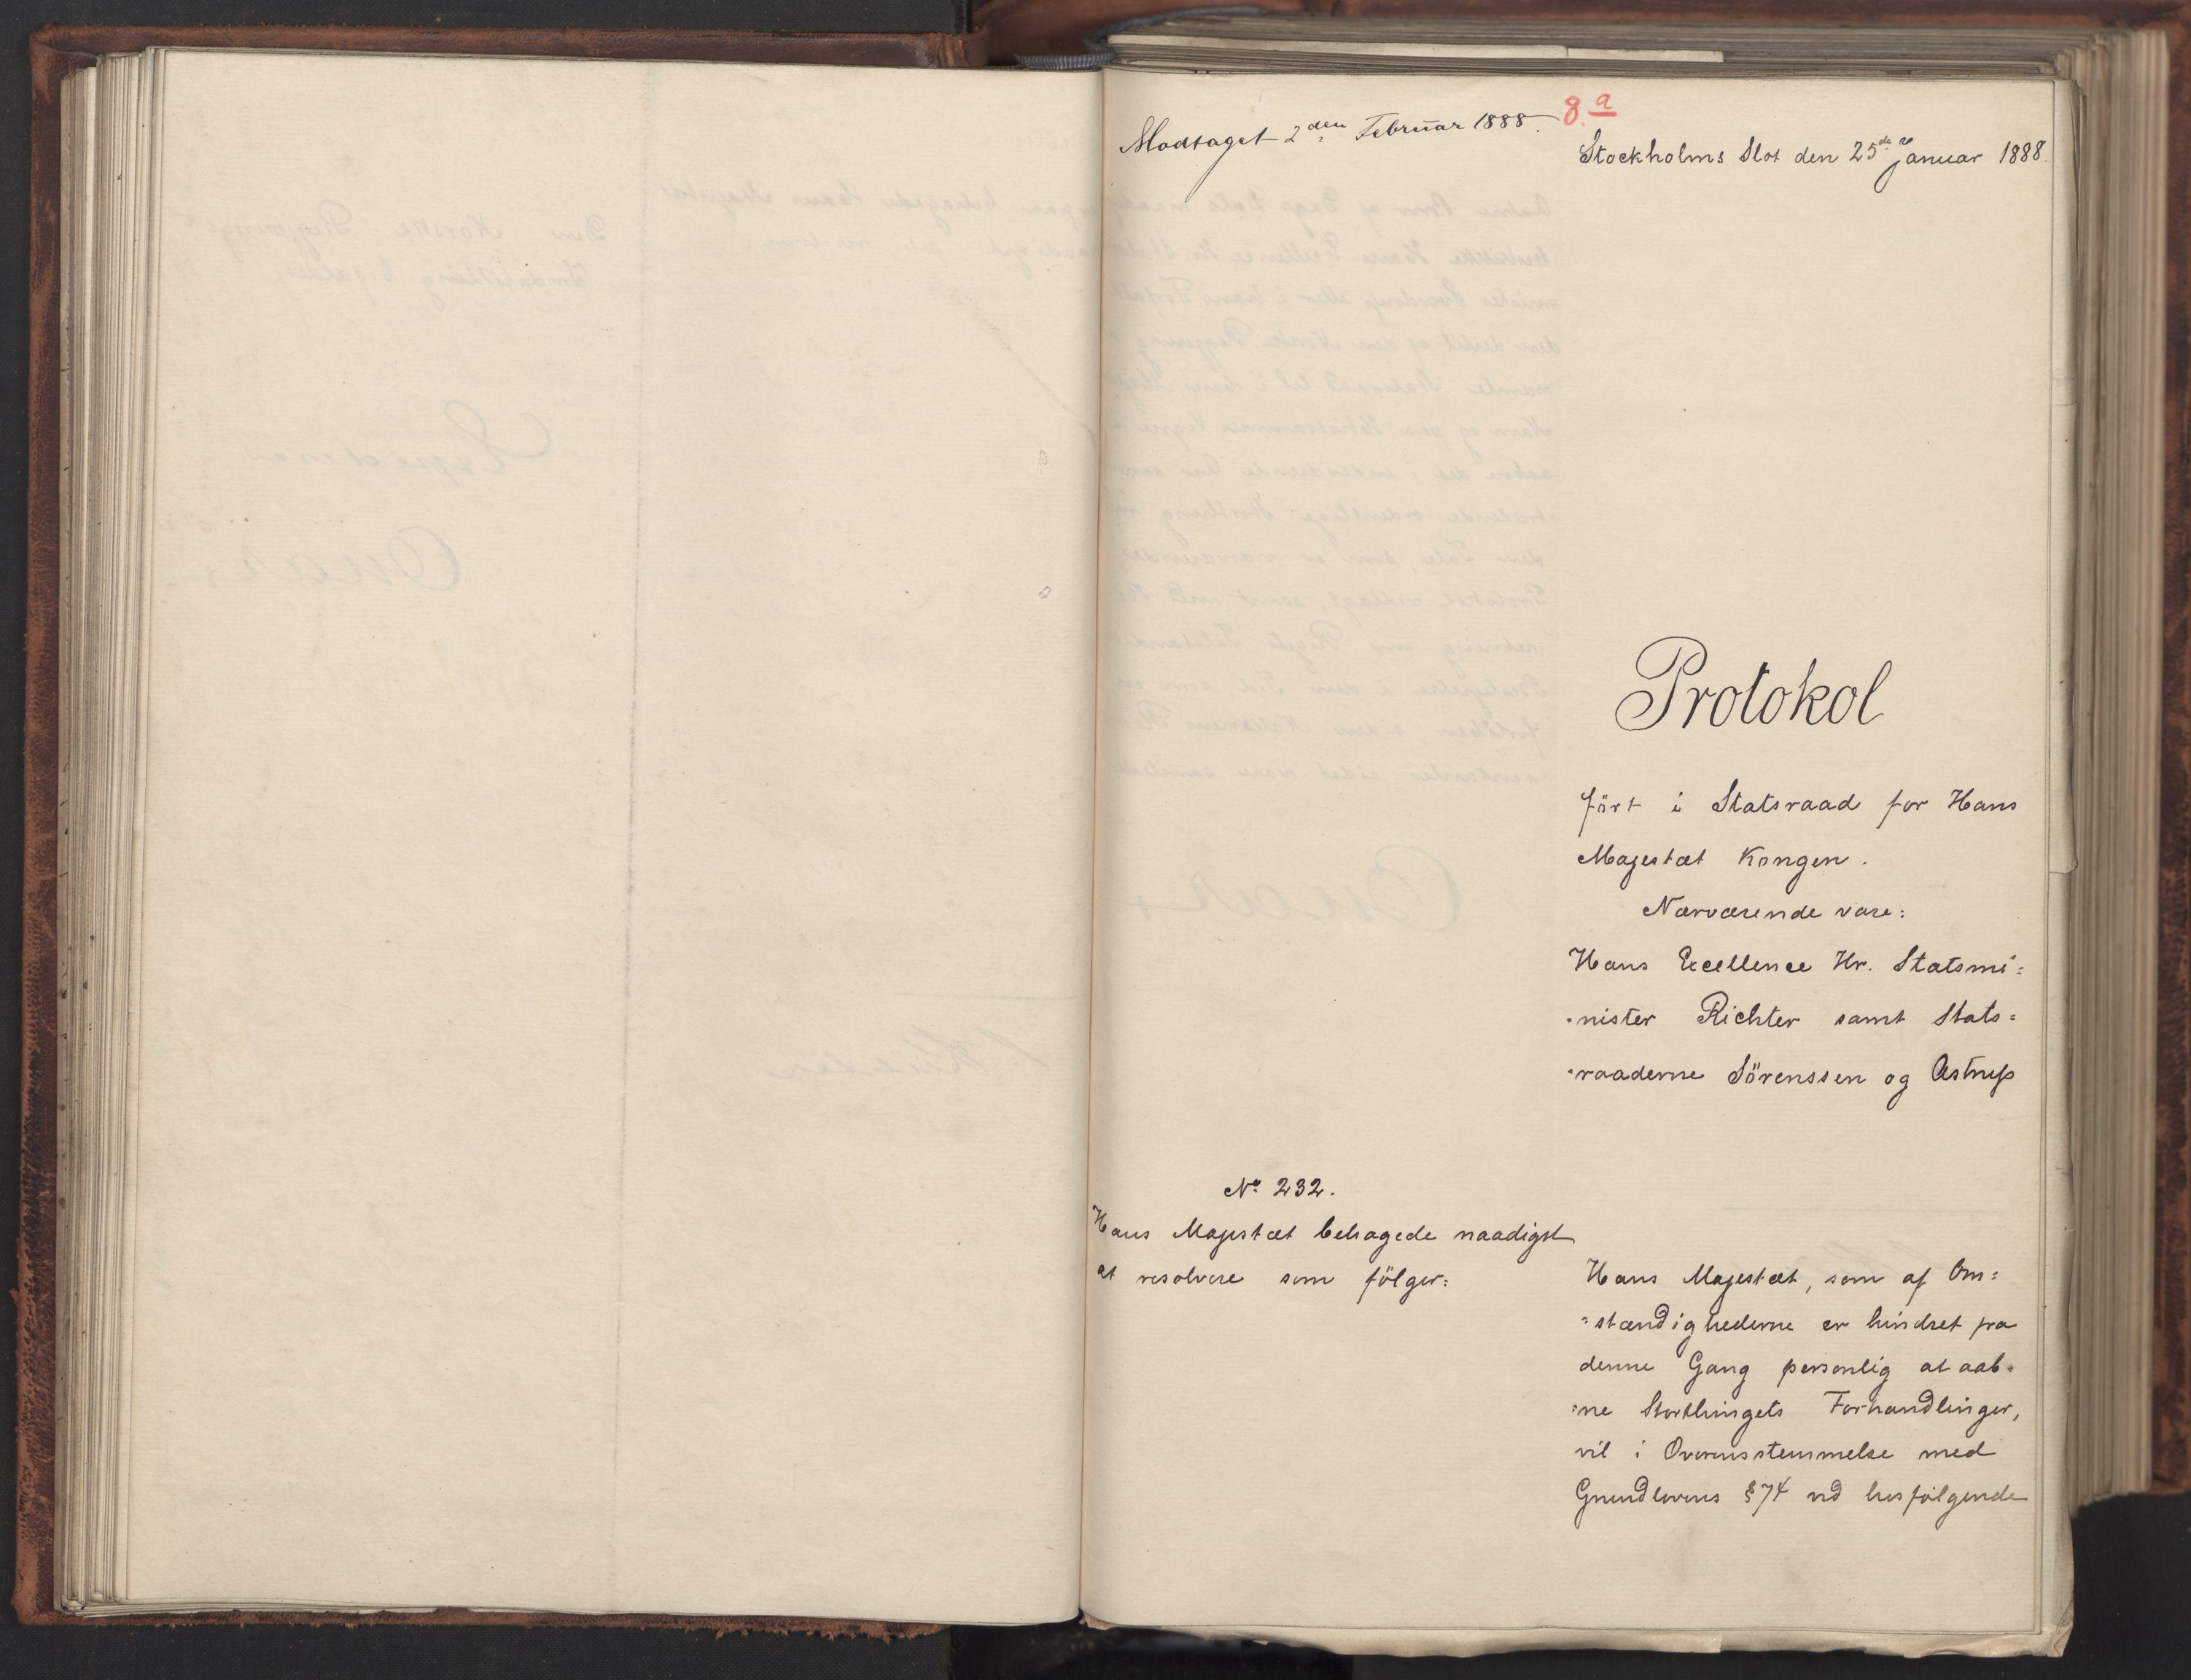 Modtaget 2den Februar 1888.
8.a
Stockholms Slot den 25de Januar 1888.
Protokol
fört i Statsraad for Hans
Majestæt Kongen.
Nærværende vare:
Hans Excellence Hr. Statsmi=
=nister Richter samt Stats=
=raaderne Sörenssen og Astrup
No 232.
Hans Majestæt behagede naadigst
at resolvere som fölger:
Hans Majestæt, som af Om=
=stændighederne er hindret fra
denne Gang personlig at aab=
=ne Storthingets Forhandlinger,
vil i Overensstemmelse med
Grundlovens § 74 ved hosfölgende